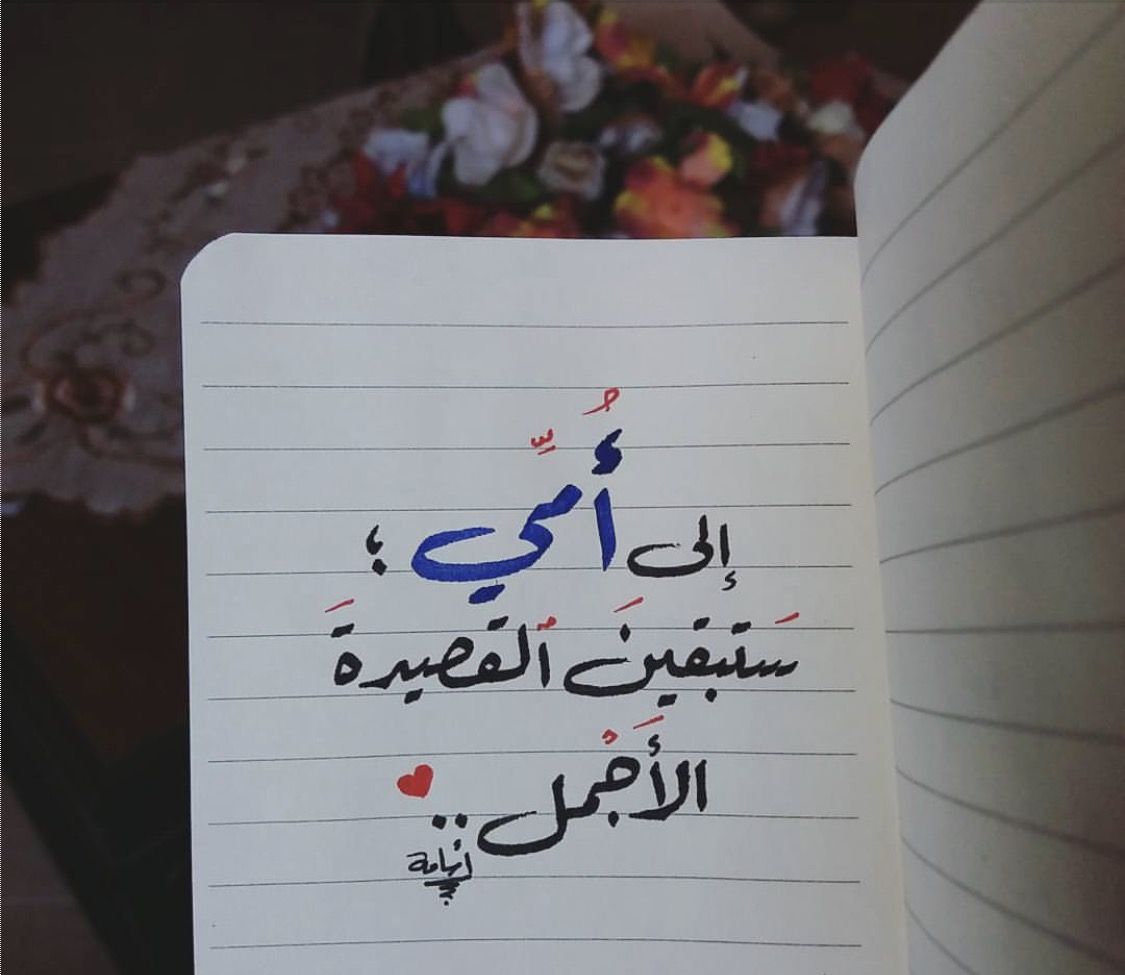 إلى أُمِّي ؛
سَتبقينَ ٱلقصيدةَ
الأَجْمل .. ♥
أسامة